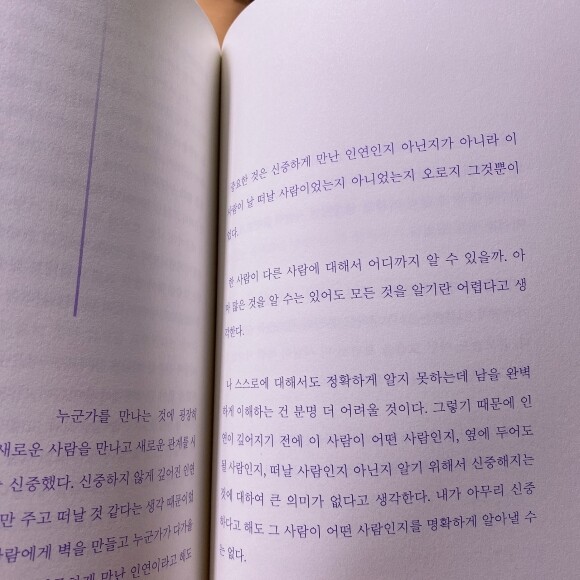 누군가를 만나는 것에 굉장히
새로운 사람을 만나고 새로운 관계를 시
신중했다. 신중하지 않게 깊어진 인연
만 주고 떠날 것 같다는 생각 때문이었
사람에게 벽을 만들고 누군가가 다가올
만난 인연이라고 해도
중요한 것은 신중하게 만난 인연인지 아닌지가 아니라 이
사람이 날 떠날 사람이었는지 아니었는지 오로지 그것뿐이
었다.
한 사람이 다른 사람에 대해서 어디까지 알 수 있을까. 아
마 많은 것을 알 수는 있어도 모든 것을 알기란 어렵다고 생
각한다.
나 스스로에 대해서도 정확하게 알지 못하는데 남을 완벽
하게 이해하는 건 분명 더 어려울 것이다. 그렇기 때문에 인
연이 깊어지기 전에 이 사람이 어떤 사람인지, 옆에 두어도
될 사람인지, 떠날 사람인지 아닌지 알기 위해서 신중해지는
것에 대하여 큰 의미가 없다고 생각한다. 내가 아무리 신중
하다고 해도 그 사람이 어떤 사람인지를 명확하게 알아낼 수
는 없다.